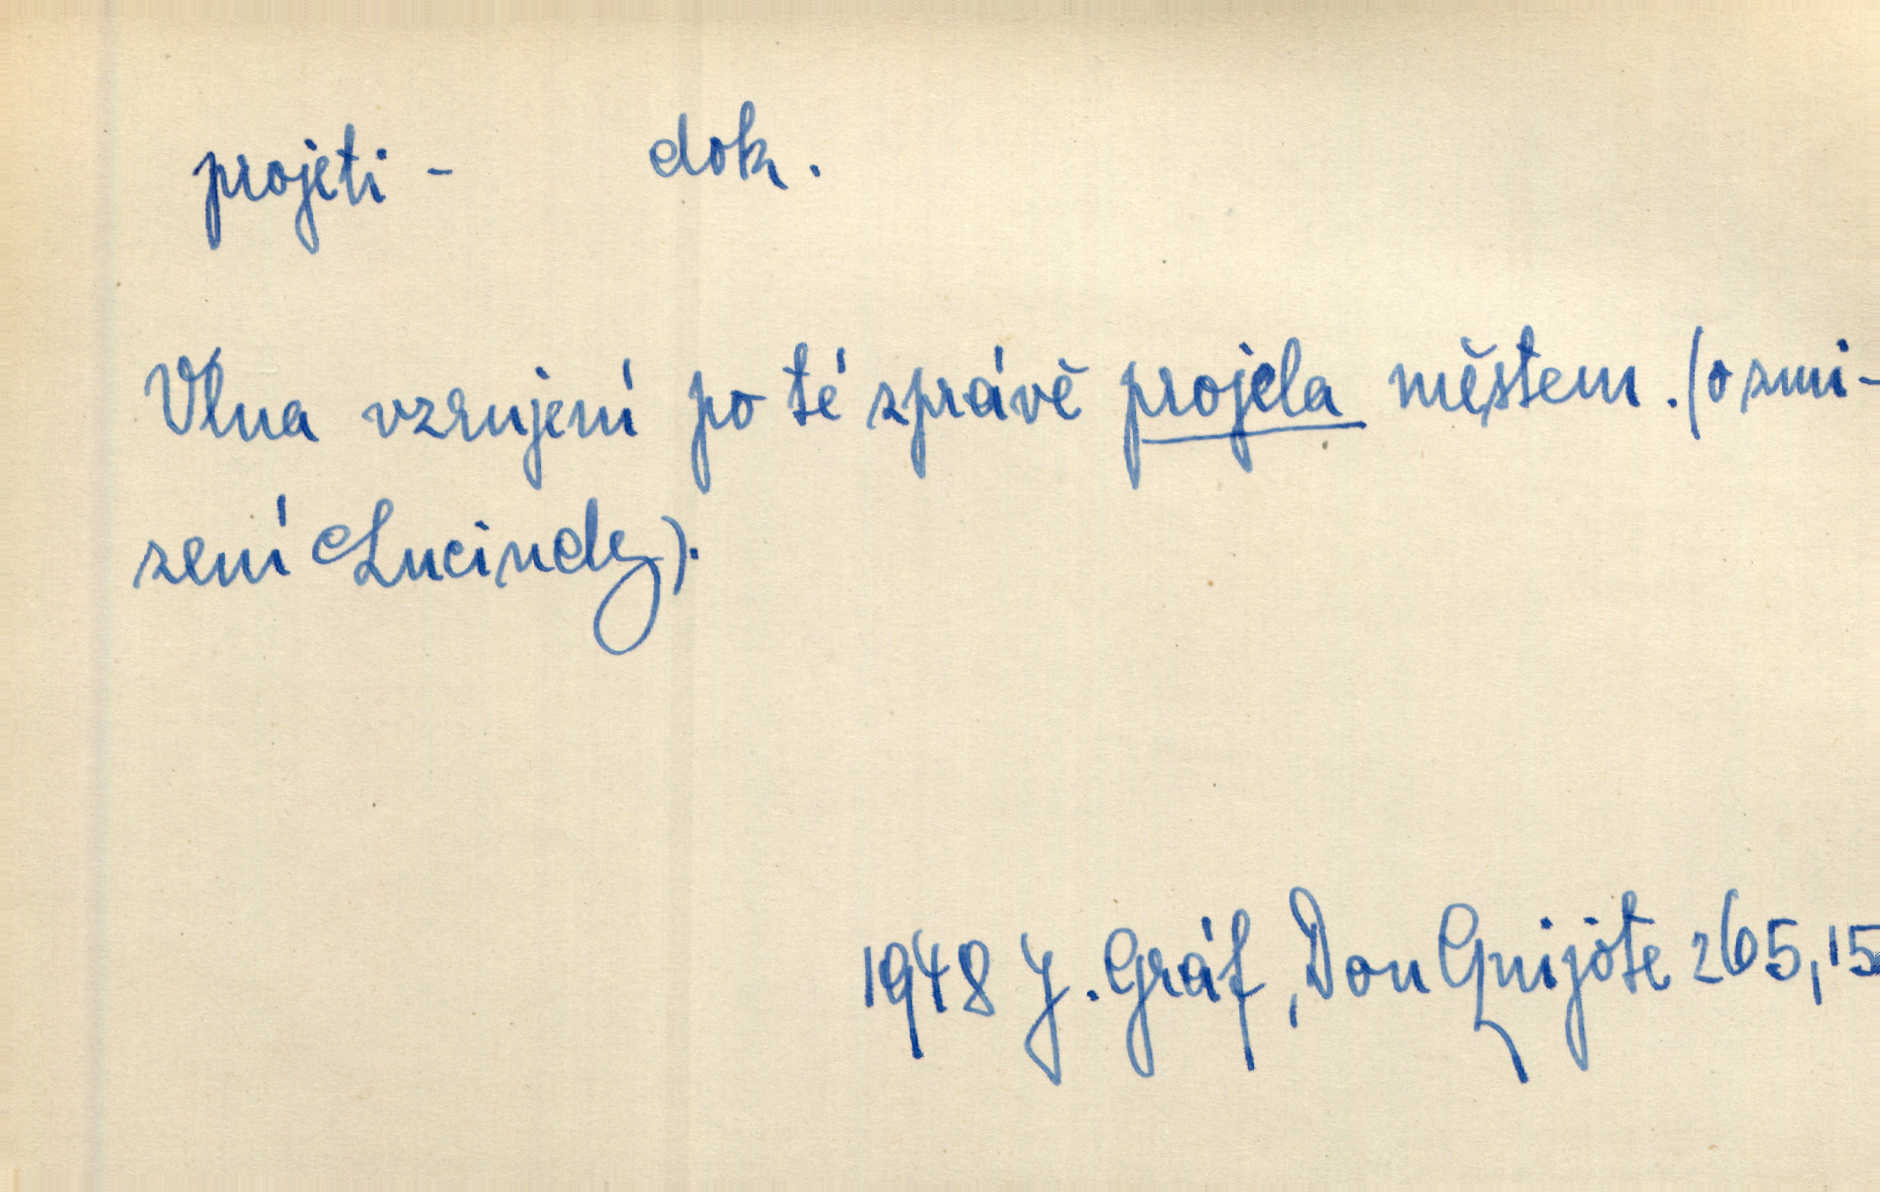 projeti - dok.
Vlna vzrujení po té zprávě projela městem. (o zmi-
zení Lucindy).
1948 J. Gráf, Don Quijote 265,15